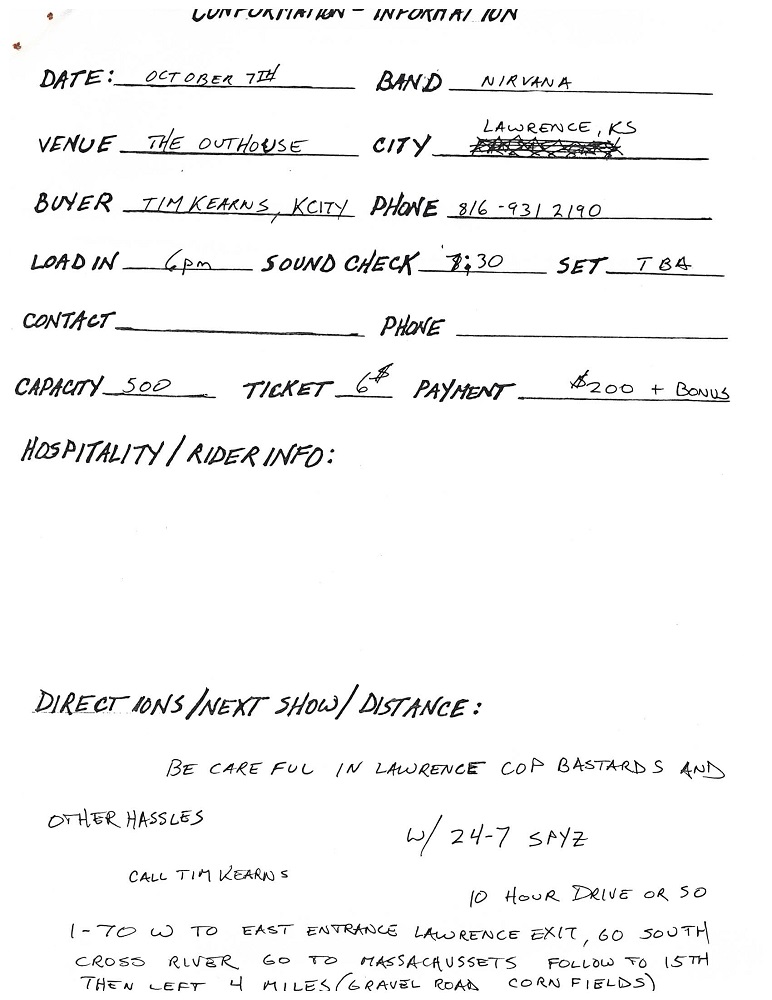 CONFORMATION - INFORMATION
DATE: OCTOBER 7TH BAND NIRVANA
VENUE THE OUTHOUSE CITY LAWRENCE, KS
BUYER TIM KEARNS, KCITY PHONE 816-931 2190
LOAD IN 6pm SOUND CHECK 7:30 SET TBA
CONTACT PHONE
CAPACITY 500 TICKET 6$ PAYMENT $200 + BONUS
HOSPITALITY/RIDER INFO:
DIRECTIONS/NEXT SHOW/DISTANCE:
BE CAREFUL IN LAWRENCE COP BASTARDS AND
OTHER HASSLES
W/ 24-7 SPYZ
CALL TIM KEARNS
10 HOUR DRIVE OR SO
I-70 W TO EAST ENTRANCE LAWRENCE EXIT, GO SOUTH
CROSS RIVER GO TO MASSACHUSSETS FOLLOW TO 15TH
THEN LEFT 4 MILES (GRAVEL ROAD CORN FIELDS)